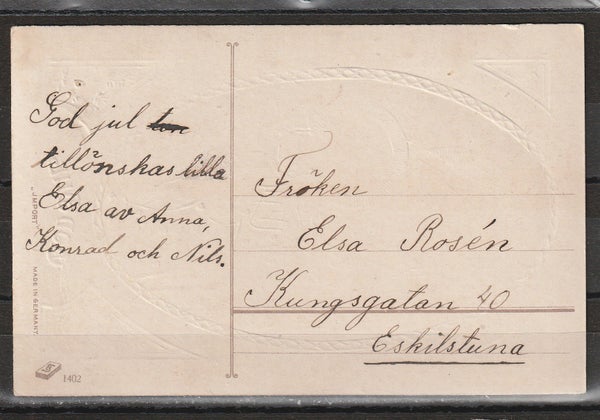 God jul
tillönskas lilla
Elsa av Anna,
Konrad och Nils.
Fröken
Elsa Rosén
Kungsgatan 40
Eskilstuna
"IMPORT"
MADE IN GERMANY
1402